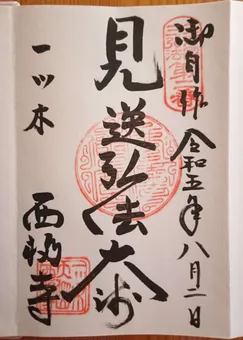 御自作 令和五年八月二日
見送弘法大师
一ツ木 西福寺